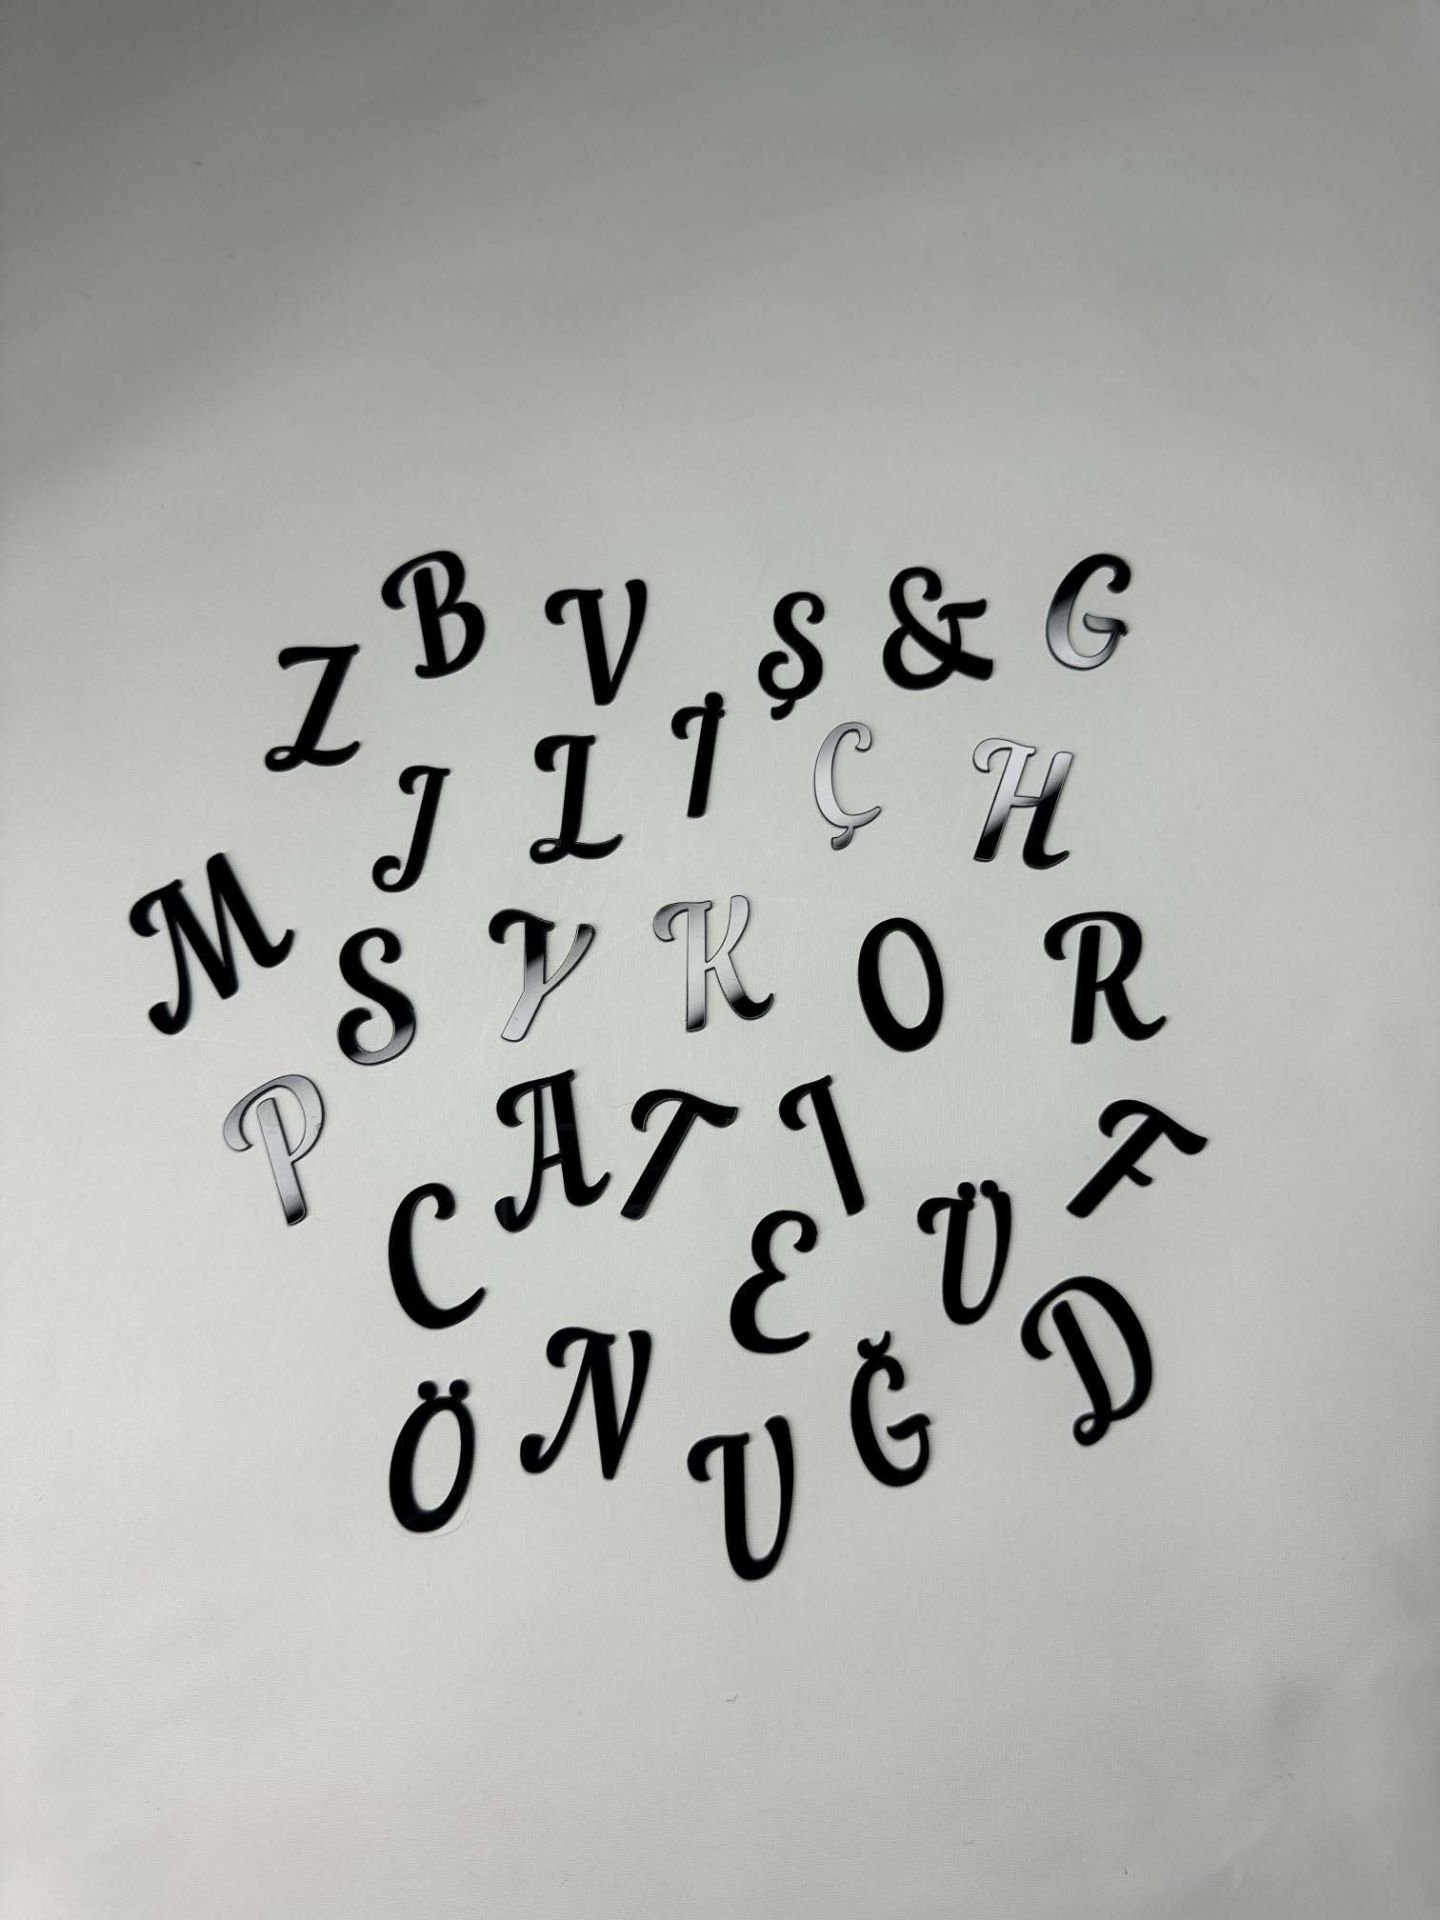 Z B V Ş & G
J L İ Ç H
M S Y K O R
P A T I F
C E Ü D
Ö N U Ğ